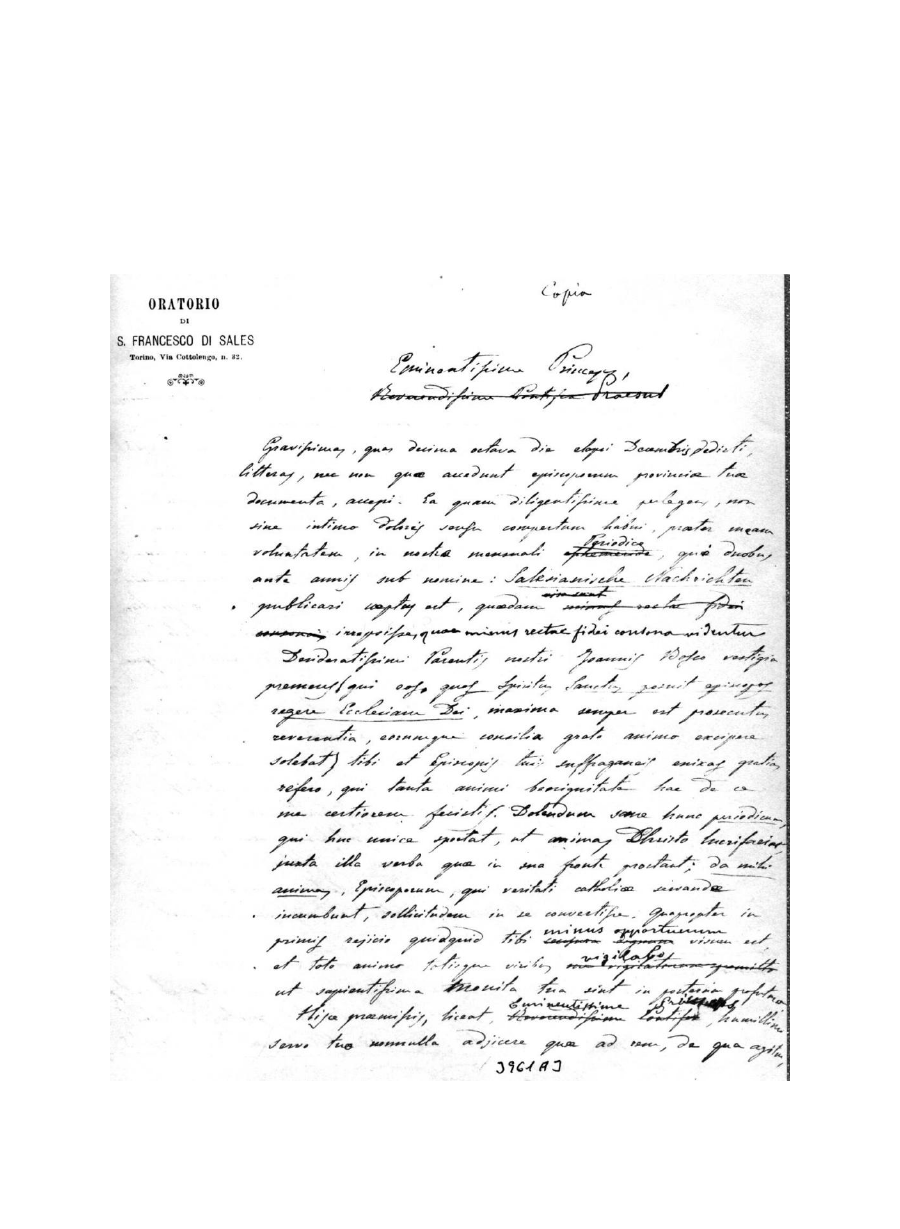 ORATORIO
DI
S. FRANCESCO DI SALES
Torino, Via Cottolengo, n. 32.
Copia
Eminentissime Princeps,
Reverendissime Pontifex Praesul
Gravissimas, quas decima octava die elapsi Decembris dedisti,
litteras, nec non quæ accedunt episcoporum provinciæ tuæ
documenta, accepi. Ea quam diligentissime perlegens, non
sine intimo doloris sensu compertum habui, præter meam
Periodico
voluntatem, in nostro menstruali ephemeride, qui duobus
ante annis sub nomine: Salesianische Nachrichten
publicari cœptus est, quædam minus rectæ fidei
consona irrepsisse, quae minus rectae fidei consona videntur
Desideratissimi Parentis nostri Joannis Bosco vestigia
premens (qui eos, quos Spiritus Sanctus posuit episcopos
regere Ecclesiam Dei, maxima semper est prosecutus
reverentia, eorumque consilia grato animo excipere
solebat) tibi et Episcopis tui suffraganeis enixas gratias
refero, qui tanta animi benignitate hac de re
me certiorem fecistis. Dolendum sane hunc periodicum,
qui huc unice spectat, ut animas Christo lucrifaciat
juxta illa verba quæ in sua fronte præstant; da mihi
animas, Episcoporum, qui veritati catholicæ servandæ
incumbunt, sollicitudinem in se convertisse. Quapropter in
minus opportunum
primis rejicio quidquid tibi censura dignum visum est
vigilabo
et toto animo totisque viribus
ut sapientissima Monita tua sint in posterum profutura
Eminentissime Princeps
Hisce præmissis, liceat, Reverendissime Pontifex, humillimo
servo tuo nonnulla adjicere quæ ad rem, de qua agitur,
3961A3